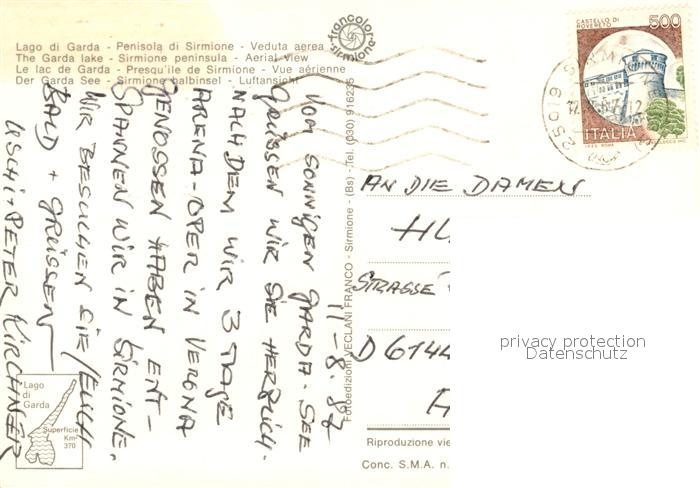 Lago di Garda - Penisola di Sirmione - Veduta aerea
The Garda lake - Sirmione peninsula - Aerial view
Le lac de Garde - Presqu'ile de Sirmione - Vue aérienne
Der Garda See - Sirmione halbinsel - Luftansicht
francolor
sirmione
CASTELLO DI
ROVERETO
500
ITALIA
25019
11-8.87
VOM SONNIGEN GARDA-SEE
GRÜSSEN WIR SIE HERZLICH.
NACHDEM WIR 3 TAGE
ARENA-OPER IN VERONA
GENOSSEN HABEN ENT-
SPANNEN WIR IN SIRMIONE.
WIR BESUCHEN SIE/EUCH
BALD + GRÜSSEN
USCHI + PETER KIRCHNER
Fotoedizioni VECLANI FRANCO - Sirmione - (Bs) - Tel. (030) 916235
AN DIE DAMEN
STRASSE
D 6144
privacy protection
Datenschutz
Lago
di
Garda
Superficie
Km²
370
Riproduzione vie
Conc. S.M.A. n.